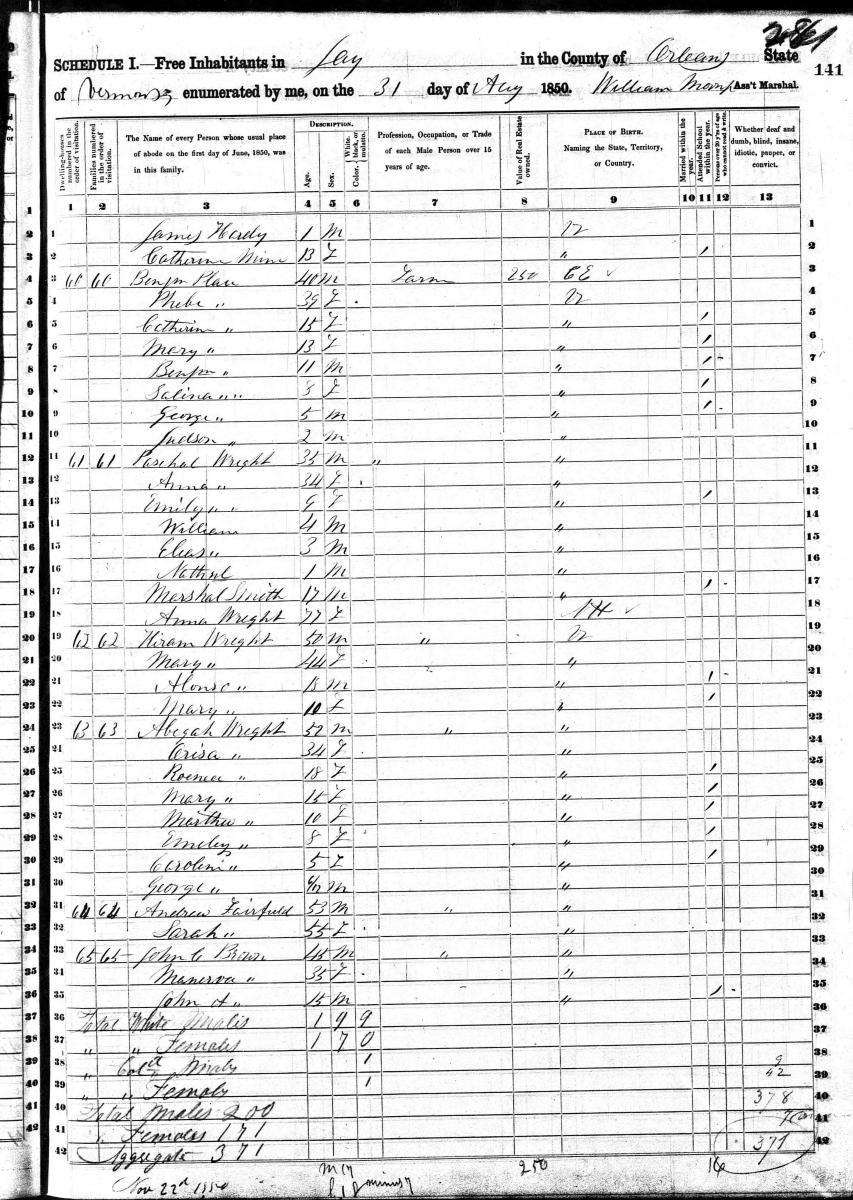 141
SCHEDULE I.—Free Inhabitants in Jay in the County of Orleans State
of Vermont enumerated by me, on the 31 day of Aug 1850. William Ass't Marshal.
Dwelling-houses numbered in the order of visitation.
Families numbered in the order of visitation.
The Name of every Person whose usual place of abode on the first day of June, 1850, was in this family.
DESCRIPTION.
Age.
Sex.
Color, White, black, or mulatto.
Profession, Occupation, or Trade of each Male Person over 15 years of age.
Value of Real Estate owned.
PLACE OF BIRTH. Naming the State, Territory, or Country.
Married within the year.
Attended School within the year.
Persons over 20 y'rs of age who cannot read & write.
Whether deaf and dumb, blind, insane, idiotic, pauper, or convict.
1 2 3 4 5 6 7 8 9 10 11 12 13
1 James Hardy 1 M
2 Catherine 13 F " /
3 60 60 Benjm Place 40 M Farm 250 CE ✓
4 Phebe " 39 F
5 Catherin " 15 F " /
6 Mary " 13 F " /
7 Benjm " 11 M " /
8 Salina " " 8 F " /
9 George " 5 M " /
10 Judson " 2 M "
11 61 61 Paschal Wright 35 M " "
12 Anna " 34 F "
13 Emily " " 6 F " /
14 William 4 M "
15 Elias " 3 M "
16 1 M "
17 Marshal Smith 17 M " /
18 Anna Wright 77 F NH ✓
19 62 62 Hiram Wright 50 M "
20 Mary " 44 F "
21 Alonso " 18 M " /
22 Mary " 10 F " /
23 63 63 Abegah Wright 52 M " "
24 Orisa " 34 F "
25 " 18 F " /
26 Mary " 15 F " /
27 Martha " 10 F " /
28 Emeley " 8 F " /
29 Caroline " 5 F " /
30 George " M "
31 64 64 Andrew Fairfield 53 M " "
32 Sarah " 55 F "
33 65 65 John C Brown 45 M " "
34 Manerva " 35 F "
35 John A " 15 M " /
36 Total White Males 199
37 " " Females 170
38 " Cold Males 1
39 " " Females 1
40 Total Males 200 378
41 " Females 171
42 Aggregate 371 371
250 16
Nov 22d 1850